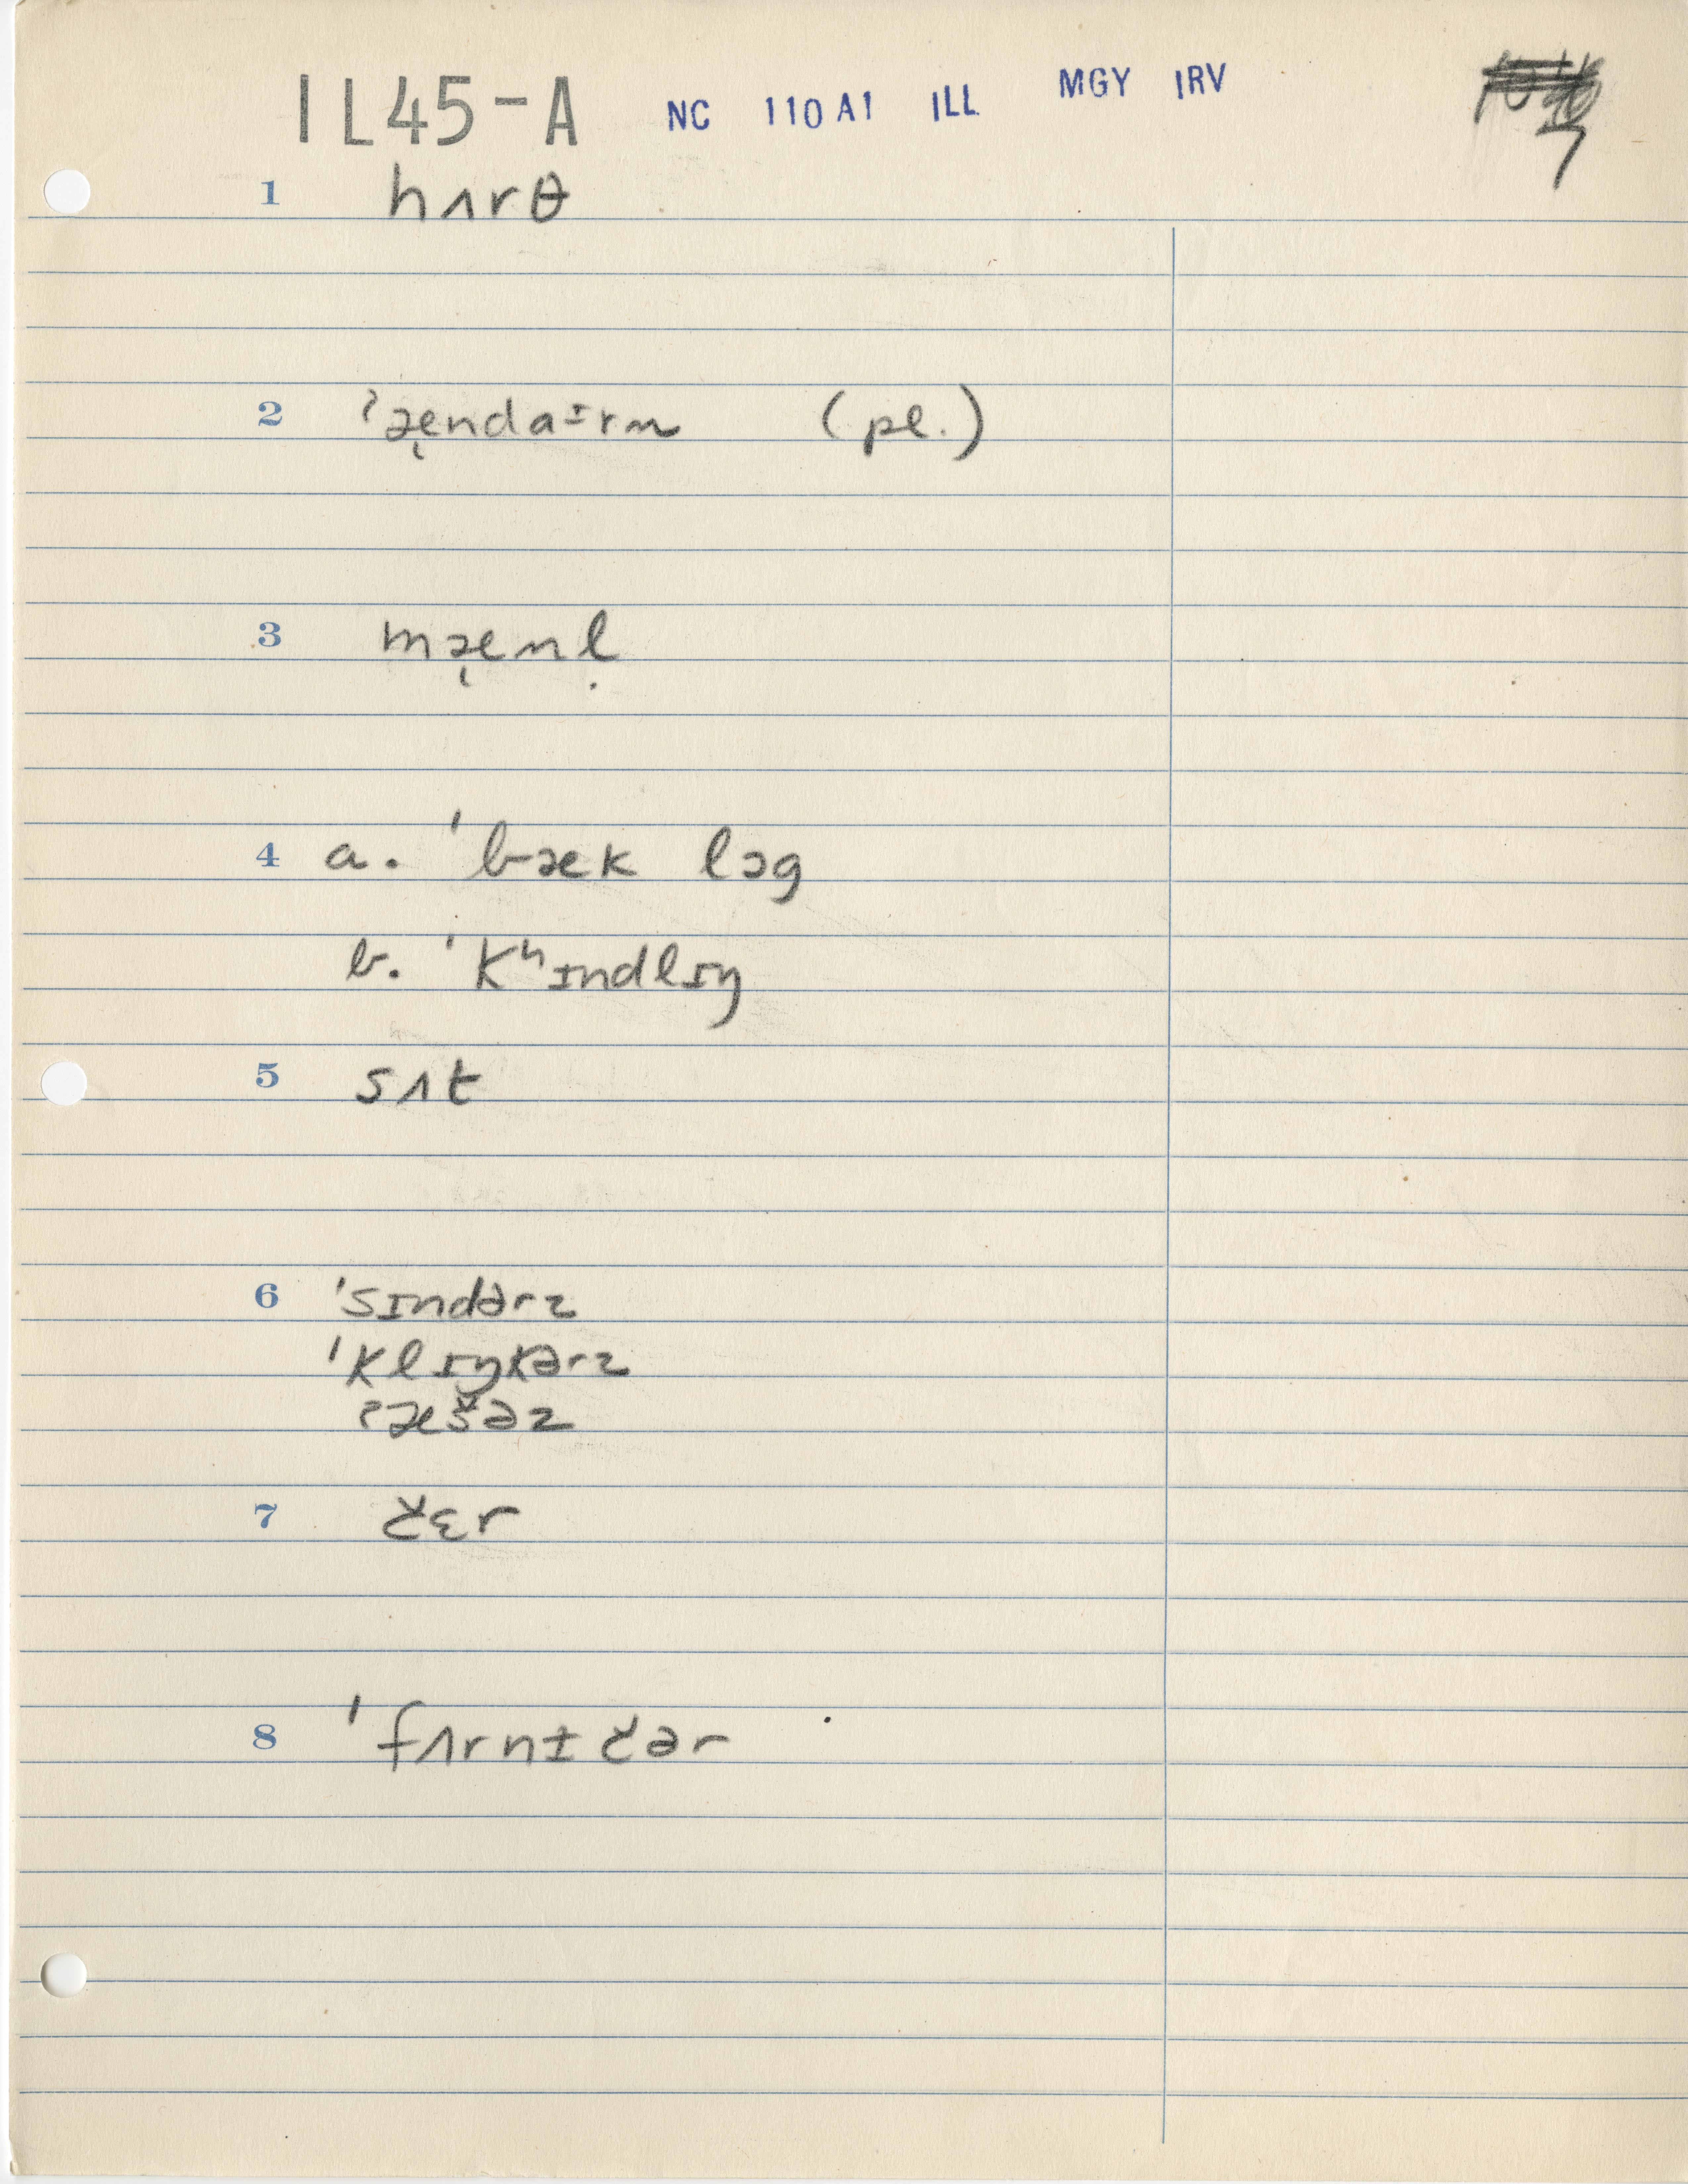 IL45-A NC 110 A1 ILL MGY IRV
7
1 hʌrθ
2 ˀæ̨ndaɪrn (pl.)
3 mæ̨nḷ
4 a. 'bæk lɔg
b. 'kʰɪndlɪŋ
5 sʌt
6 'sɪndərz
'klɪŋkərz
ˀæšəz
7 čɛr
8 'fʌrnɨčər